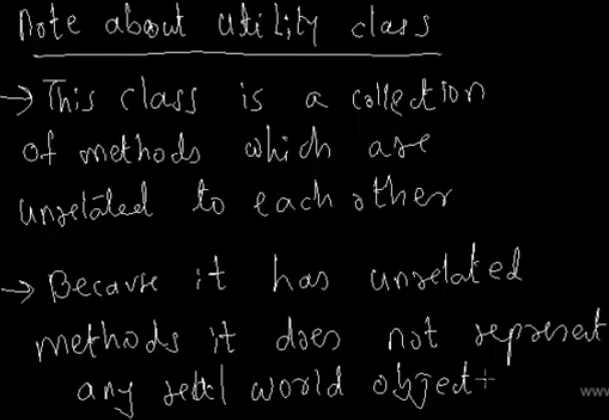 Note about utility class
→ This class is a collection
of methods which are
unrelated to each other
→ Because it has unrelated
methods it does not represent
any real world object
www